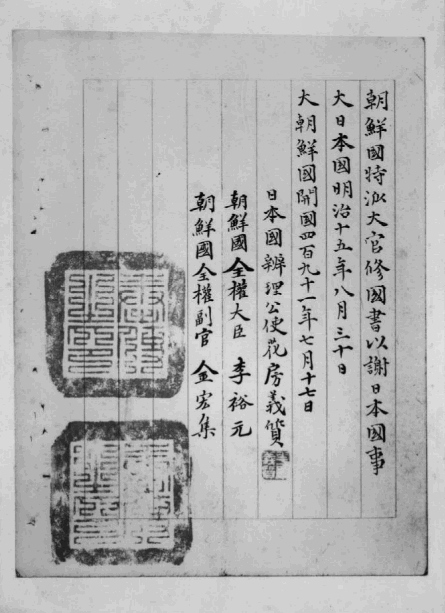 朝鮮國特派大官修國書以謝日本國事
大日本國明治十五年八月三十日
大朝鮮國開國四百九十一年七月十七日
日本國辦理公使花房義質
朝鮮國全權大臣 李裕元
朝鮮國全權副官 金宏集